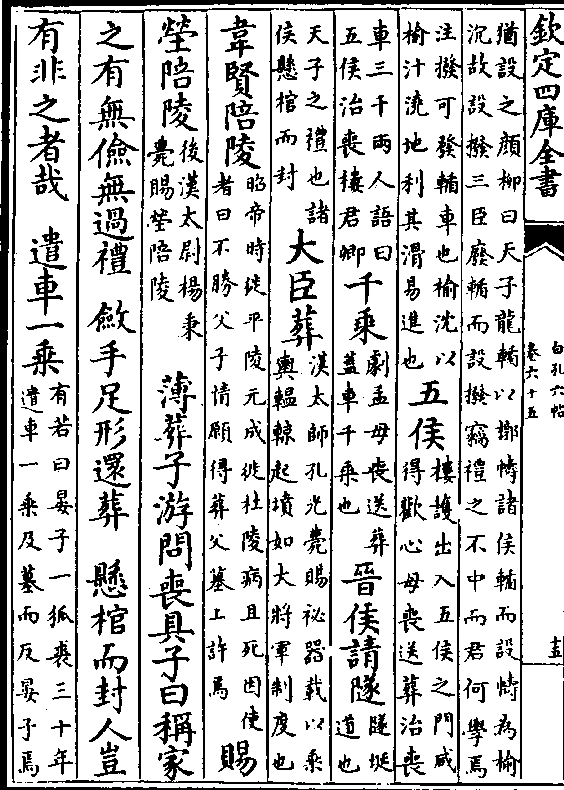 欽定四庫全書
白孔六帖
卷六十五
猶設之顔柳曰天子龍輴以椁幬諸侯輴而設幬為榆
沉故設撥三臣廢輴而設撥竊禮之不中而君何學焉
注撥可發輴車也榆沈以
榆汁澆地利其滑易進也
五侯
樓護出入五侯之門咸
得歡心母喪送葬治喪
車三千兩人語曰
五侯治喪樓君卿
千乘
劇孟母喪送葬
蓋車千乘也
晉侯請隧
隧埏
道也
天子之禮也諸
侯懸棺而封
大臣葬
漢太師孔光薨賜祕器載以乘
輿轀輬起墳如大將軍制度也
韋賢陪陵
昭帝時徙平陵元成徙杜陵病且死因使
者曰不勝父子情願得葬父墓上許焉
賜
塋陪陵
後漢太尉楊秉
薨賜塋陪陵
薄葬子游問喪具子曰稱家
之有無儉無過禮 斂手足形還葬 懸棺而封人豈
有非之者哉 遣車一乘
有若曰晏子一狐裘三十年
遣車一乘及墓而反晏子焉